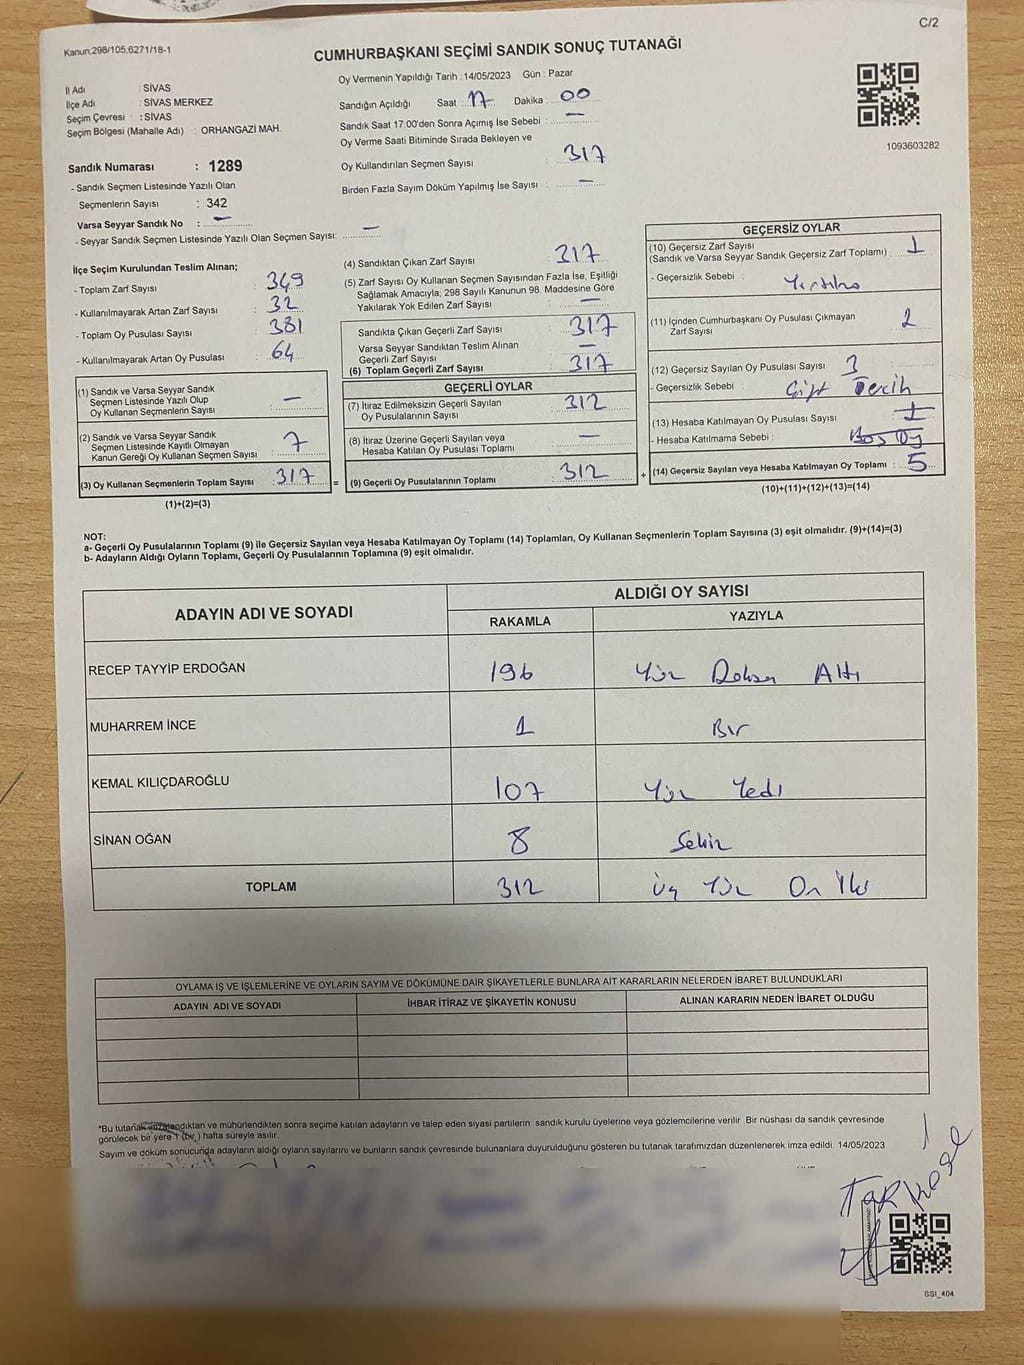 C/2
Kanun:298/105;6271/18-1
CUMHURBAŞKANI SEÇİMİ SANDIK SONUÇ TUTANAĞI
İl Adı : SİVAS
İlçe Adı : SİVAS MERKEZ
Seçim Çevresi : SİVAS
Seçim Bölgesi (Mahalle Adı) : ORHANGAZİ MAH.
Sandık Numarası : 1289
- Sandık Seçmen Listesinde Yazılı Olan
Seçmenlerin Sayısı : 342
Varsa Seyyar Sandık No : —
- Seyyar Sandık Seçmen Listesinde Yazılı Olan Seçmen Sayısı: —
Oy Vermenin Yapıldığı Tarih :14/05/2023 Gün : Pazar
Sandığın Açıldığı Saat : 17 Dakika : 00
Sandık Saat 17:00'den Sonra Açımış İse Sebebi : —
Oy Verme Saati Bitiminde Sırada Bekleyen ve
Oy Kullandırılan Seçmen Sayısı : 317
Birden Fazla Sayım Döküm Yapılmış İse Sayısı : —
1093603282
İlçe Seçim Kurulundan Teslim Alınan;
- Toplam Zarf Sayısı : 349
- Kullanılmayarak Artan Zarf Sayısı : 32
- Toplam Oy Pusulası Sayısı : 381
- Kullanılmayarak Artan Oy Pusulası : 64
(1) Sandık ve Varsa Seyyar Sandık
Seçmen Listesinde Yazılı Olup
Oy Kullanan Seçmenlerin Sayısı : —
(2) Sandık ve Varsa Seyyar Sandık
Seçmen Listesinde Kayıtlı Olmayan
Kanun Gereği Oy Kullanan Seçmen Sayısı : 7
(3) Oy Kullanan Seçmenlerin Toplam Sayısı : 317 =
(1)+(2)=(3)
(4) Sandıktan Çıkan Zarf Sayısı : 317
(5) Zarf Sayısı Oy Kullanan Seçmen Sayısından Fazla İse, Eşitliği
Sağlamak Amacıyla; 298 Sayılı Kanunun 98. Maddesine Göre
Yakılarak Yok Edilen Zarf Sayısı : —
Sandıkta Çıkan Geçerli Zarf Sayısı : 317
Varsa Seyyar Sandıktan Teslim Alınan
Geçerli Zarf Sayısı : —
(6) Toplam Geçerli Zarf Sayısı : 317
GEÇERLİ OYLAR
(7) İtiraz Edilmeksizin Geçerli Sayılan
Oy Pusulalarının Sayısı : 312
(8) İtiraz Üzerine Geçerli Sayılan veya
Hesaba Katılan Oy Pusulası Toplamı : —
(9) Geçerli Oy Pusulalarının Toplamı : 312 +
GEÇERSİZ OYLAR
(10) Geçersiz Zarf Sayısı
(Sandık ve Varsa Seyyar Sandık Geçersiz Zarf Toplamı) : 1
- Geçersizlik Sebebi :
(11) İçinden Cumhurbaşkanı Oy Pusulası Çıkmayan
Zarf Sayısı : 2
(12) Geçersiz Sayılan Oy Pusulası Sayısı : 3
- Geçersizlik Sebebi : Çift Tercih
(13) Hesaba Katılmayan Oy Pusulası Sayısı : 1
- Hesaba Katılmama Sebebi : Boş Oy
(14) Geçersiz Sayılan veya Hesaba Katılmayan Oy Toplamı : 5
(10)+(11)+(12)+(13)=(14)
NOT:
a- Geçerli Oy Pusulalarının Toplamı (9) ile Geçersiz Sayılan veya Hesaba Katılmayan Oy Toplamı (14) Toplamları, Oy Kullanan Seçmenlerin Toplam Sayısına (3) eşit olmalıdır. (9)+(14)=(3)
b- Adayların Aldığı Oyların Toplamı, Geçerli Oy Pusulalarının Toplamına (9) eşit olmalıdır.
ADAYIN ADI VE SOYADI
ALDIĞI OY SAYISI
RAKAMLA YAZIYLA
RECEP TAYYİP ERDOĞAN 196 Yüz Doksan Altı
MUHARREM İNCE 1 Bir
KEMAL KILIÇDAROĞLU 107 Yüz Yedi
SİNAN OĞAN 8 Sekiz
TOPLAM 312 Üç Yüz On İki
OYLAMA İŞ VE İŞLEMLERİNE VE OYLARIN SAYIM VE DÖKÜMÜNE DAİR ŞİKAYETLERLE BUNLARA AİT KARARLARIN NELERDEN İBARET BULUNDUKLARI
ADAYIN ADI VE SOYADI İHBAR İTİRAZ VE ŞİKAYETİN KONUSU ALINAN KARARIN NEDEN İBARET OLDUĞU
*Bu tutanak imzalandıktan ve mühürlendikten sonra seçime katılan adayların ve talep eden siyasi partilerin sandık kurulu üyelerine veya gözlemcilerine verilir. Bir nüshası da sandık çevresinde
görülecek bir yere 1 (bir ) hafta süreyle asılır.
Sayım ve döküm sonucunda adayların aldığı oyların sayılarını ve bunların sandık çevresinde bulunanlara duyurulduğunu gösteren bu tutanak tarafımızdan düzenlenerek imza edildi. 14/05/2023
SSI_404